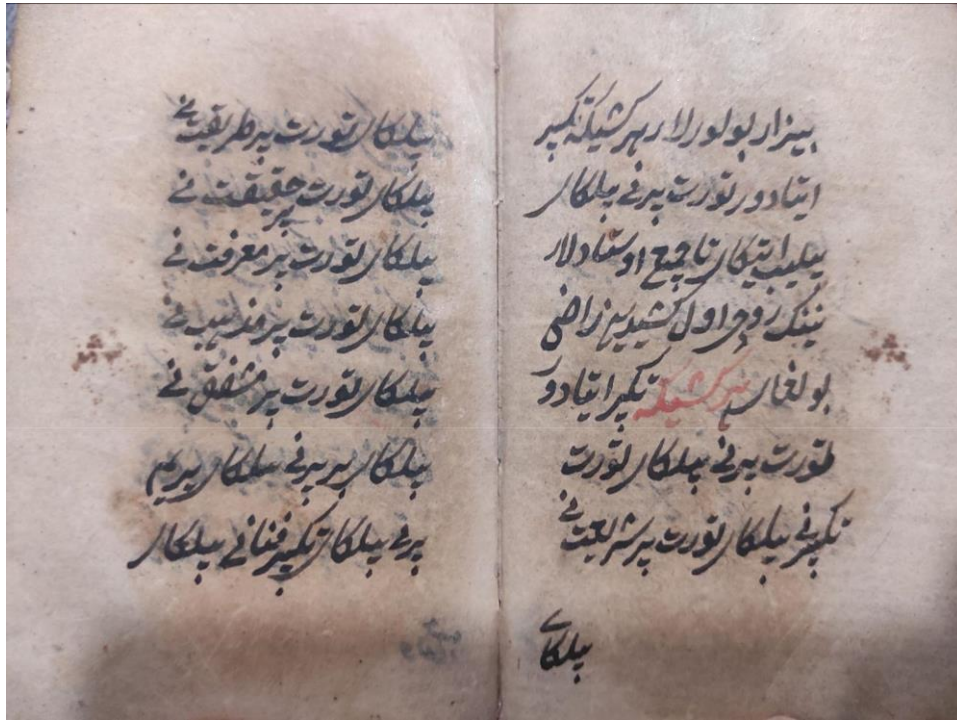 بیزار بولورلار هر کشیکه تکبیر
ایتادور تورت پیرنی بیلکای
بیلمب ایتیکای تا جمیع اوستادلار
نینک روحی اول کشیدین راضی
بولغای هر کشیکه تکبیر ایتادور
تورت پیرنی بیلکای تورت
تکبیرنی بیلکای تورت پیر شریعت نی
بیلکای
بیلکای تورت پیر طریقت نی
بیلکای تورت پیر حقیقت نی
بیلکای تورت پیر معرفت نی
بیلکای تورت پیر مذهب نی
بیلکای تورت پیر مشفق نی
بیلکای بر پیرنی بیلکای پریم
پرنی بیلکای تکبیر فنانی بیلکای